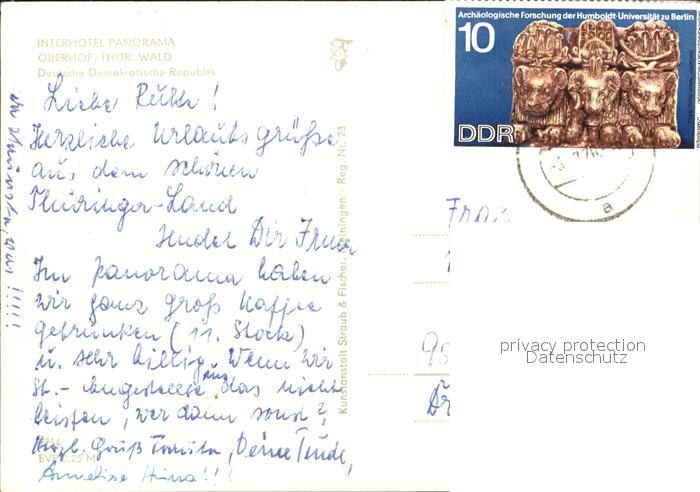 INTERHOTEL PANORAMA
OBERHOF/THÜR. WALD
Deutsche Demokratische Republik
Liebe Ruth!
Herzliche Urlaubsgrüße
aus dem schönen
Thüringer-Land
sendet Dir
Im Panorama haben
wir ganz groß Kaffee
getrunken (11. Stock)
u. sehr billig. Wenn wir
St.-Angestellte uns das nicht
leisten, wer dann sonst?
Herzl. Gruß Deine
!!!
EVP 0,25 M
Kunstanstalt Straub & Fischer, Meiningen · Reg. Nr. 23
Archäologische Forschung der Humboldt-Universität zu Berlin
10
DDR
a
Frau
95
privacy protection
Datenschutz